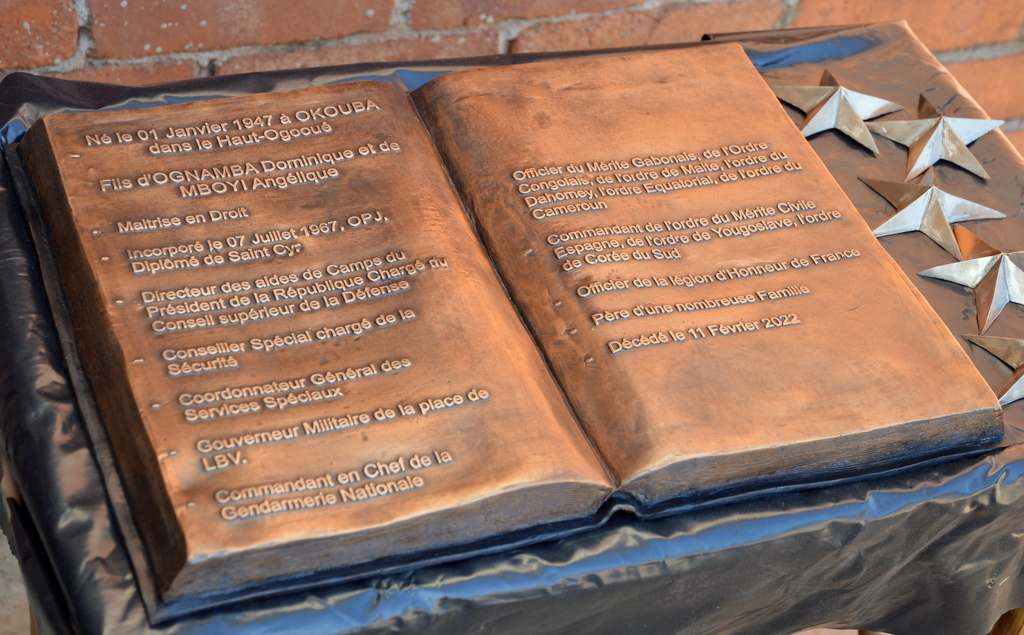 Né le 01 Janvier 1947 à OKOUBA
dans le Haut-Ogooué
Fils d'OGNAMBA Dominique et de
MBOYI Angélique
- Maîtrise en Droit
- Incorporé le 07 Juillet 1967, OPJ,
Diplômé de Saint Cyr
- Directeur des aides de Camps du
Président de la République Chargé du
Conseil supérieur de la Défense
- Conseiller Spécial chargé de la
Sécurité
- Coordonnateur Général des
Services Spéciaux
- Gouverneur Militaire de la place de
LBV.
- Commandant en Chef de la
Gendarmerie Nationale
- Officier du Mérite Gabonais, de l'Ordre
Congolais, de l'ordre de Malte, l'ordre du
Dahomey, l'ordre Equatorial, de l'ordre du
Cameroun
- Commandant de l'ordre du Mérite Civile
Espagne, de l'ordre de Yougoslave, l'ordre
de Corée du Sud
- Officier de la légion d'Honneur de France
- Père d'une nombreuse Famille
- Décédé le 11 Février 2022